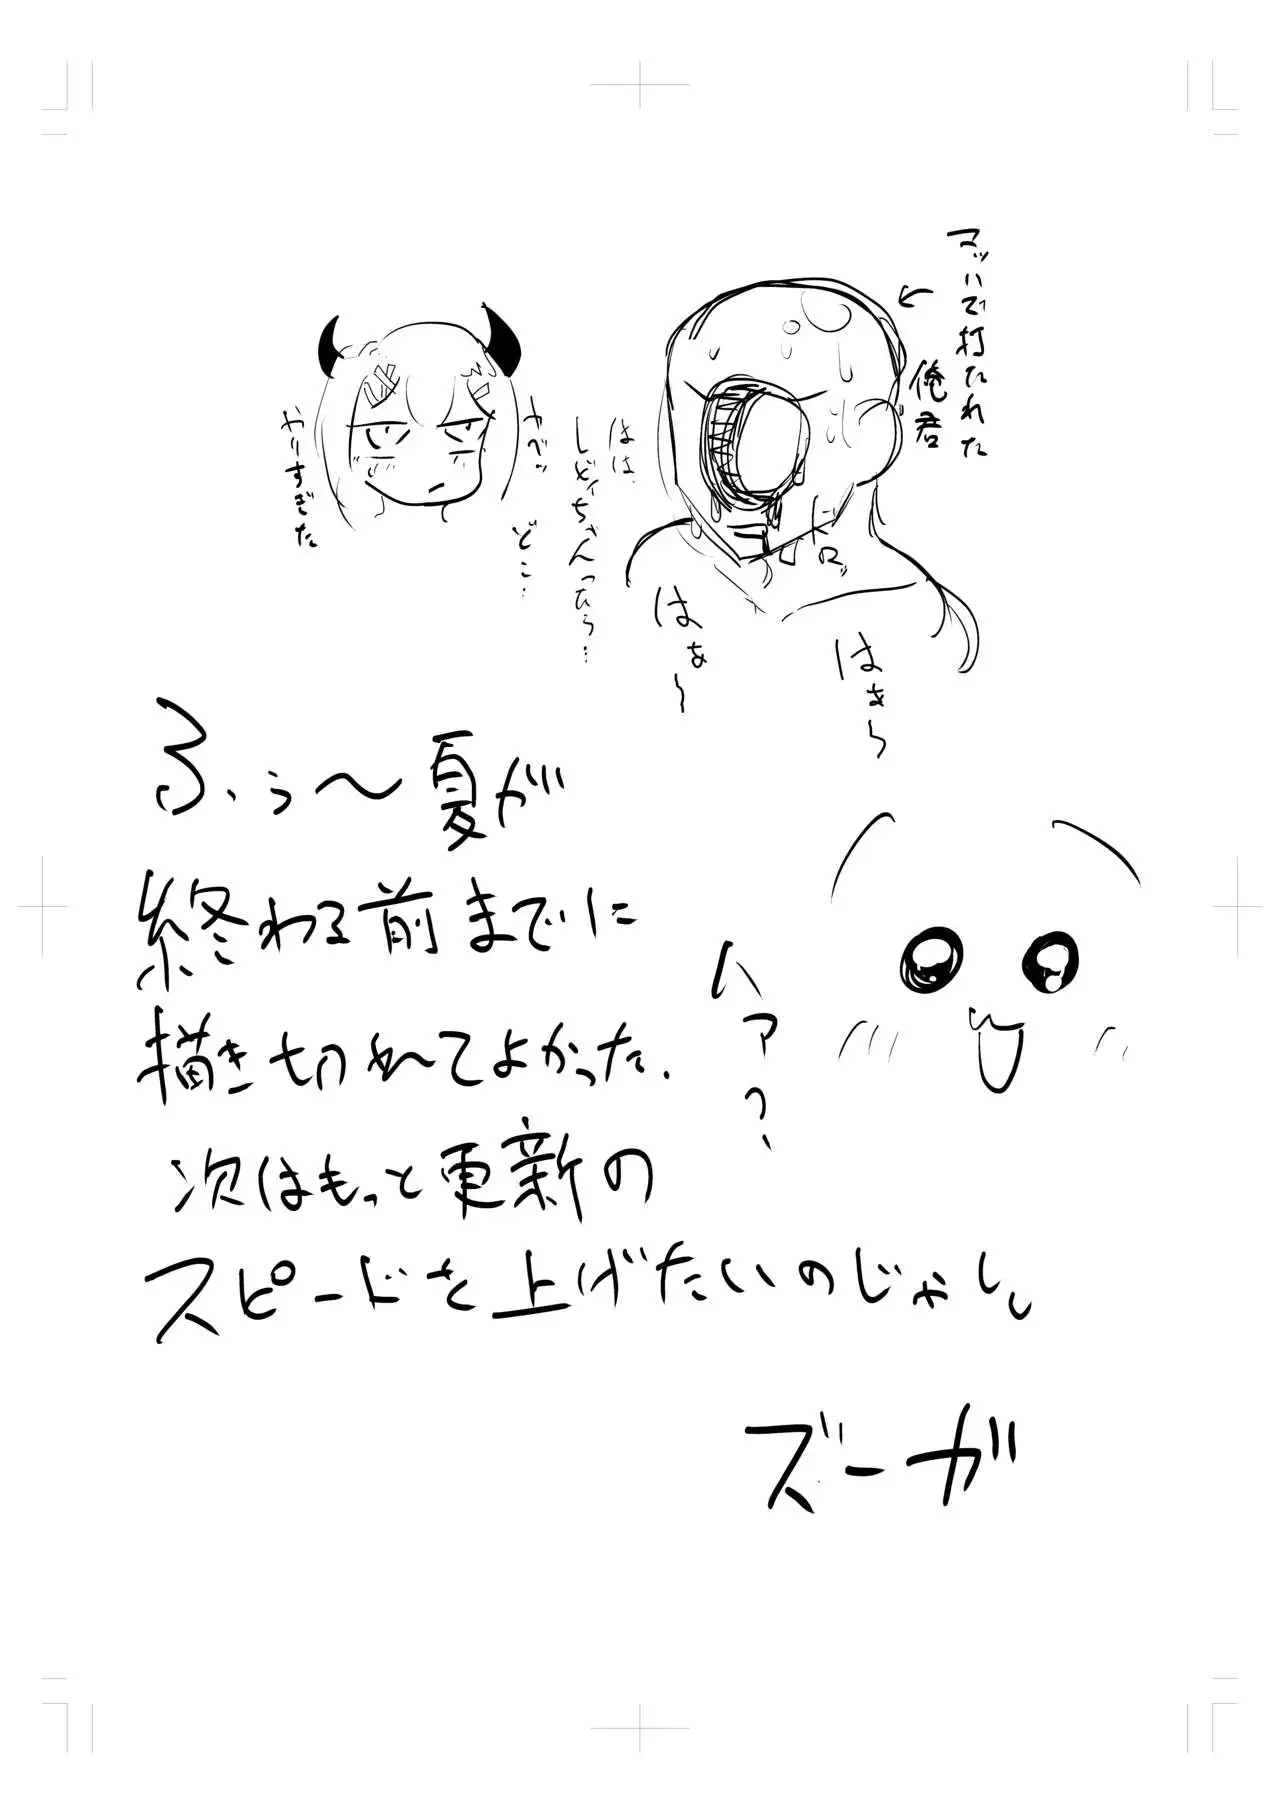 マッハで打たれた
俺君
はは、
しどいちゃんったら…
どこ…
ヤベッ
やりすぎた
ドロッ
はぁ〜
はぁ〜
ふぅ〜夏が
終わる前までに
描き切れてよかった、
次はもっと更新の
スピードを上げたいのじゃし。
ハァっ、
ズーガ